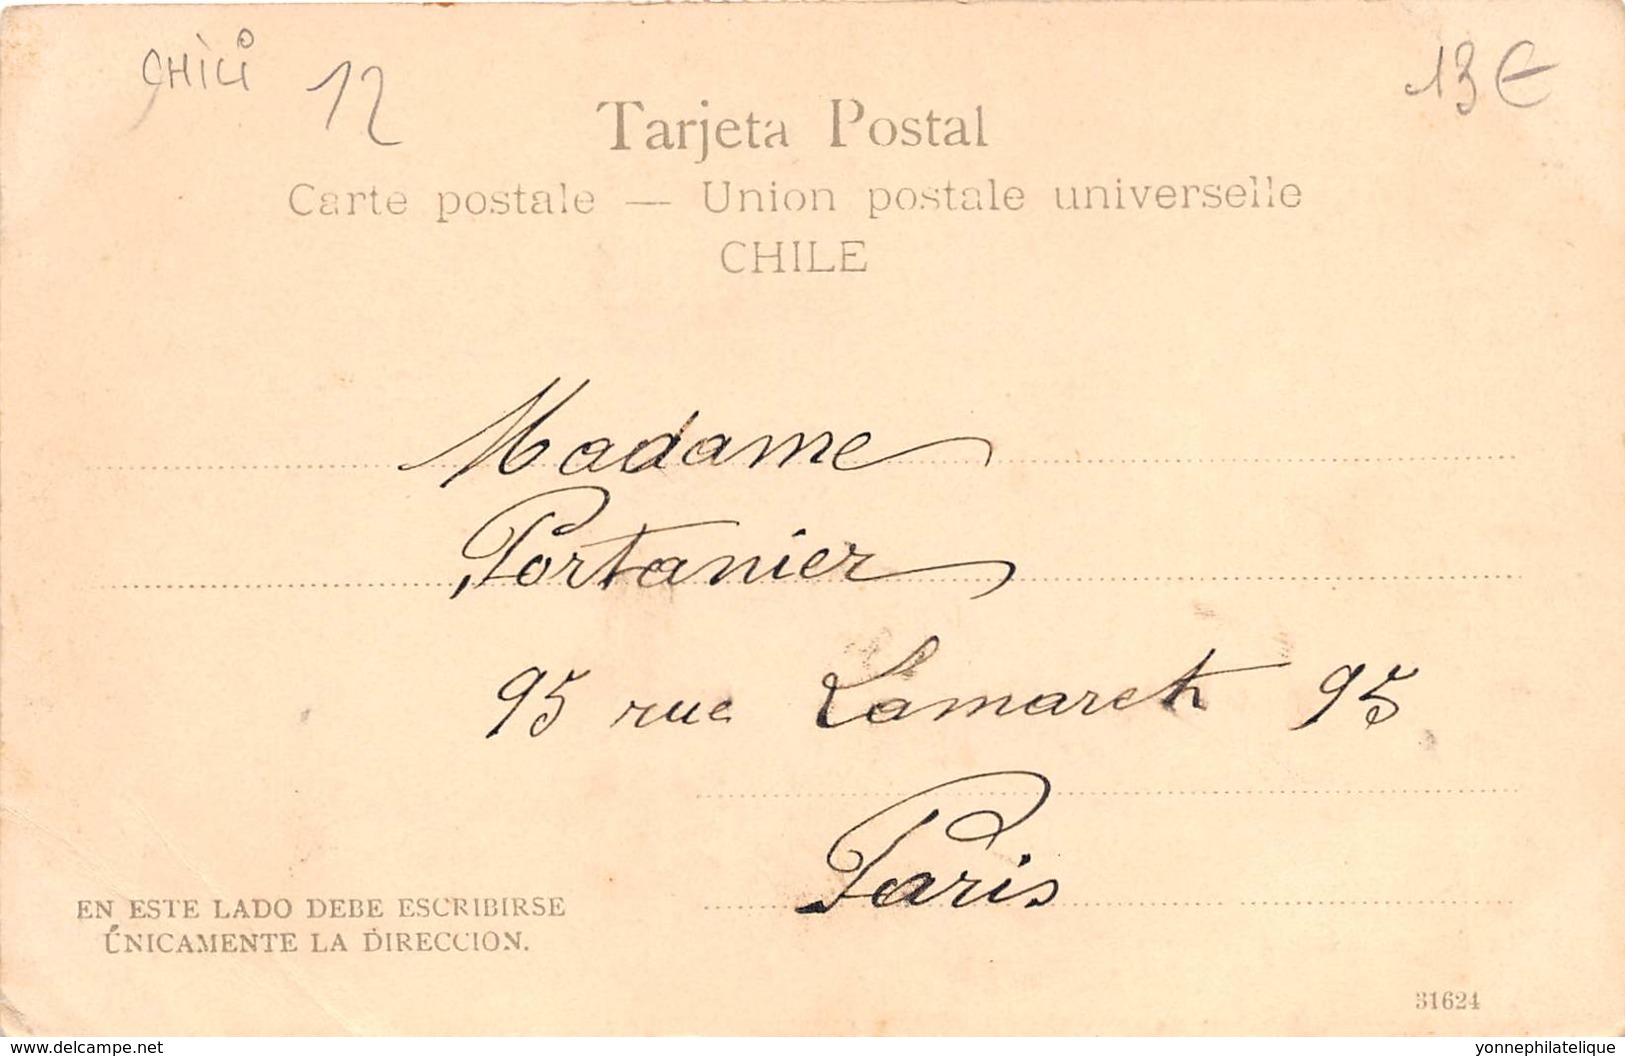 CHILI 12
13€
Tarjeta Postal
Carte postale — Union postale universelle
CHILE
Madame
Portanier
95 rue Lamarck 95
Paris
EN ESTE LADO DEBE ESCRIBIRSE
ÚNICAMENTE LA DIRECCION.
31624
www.delcampe.net
yonnephilatelique